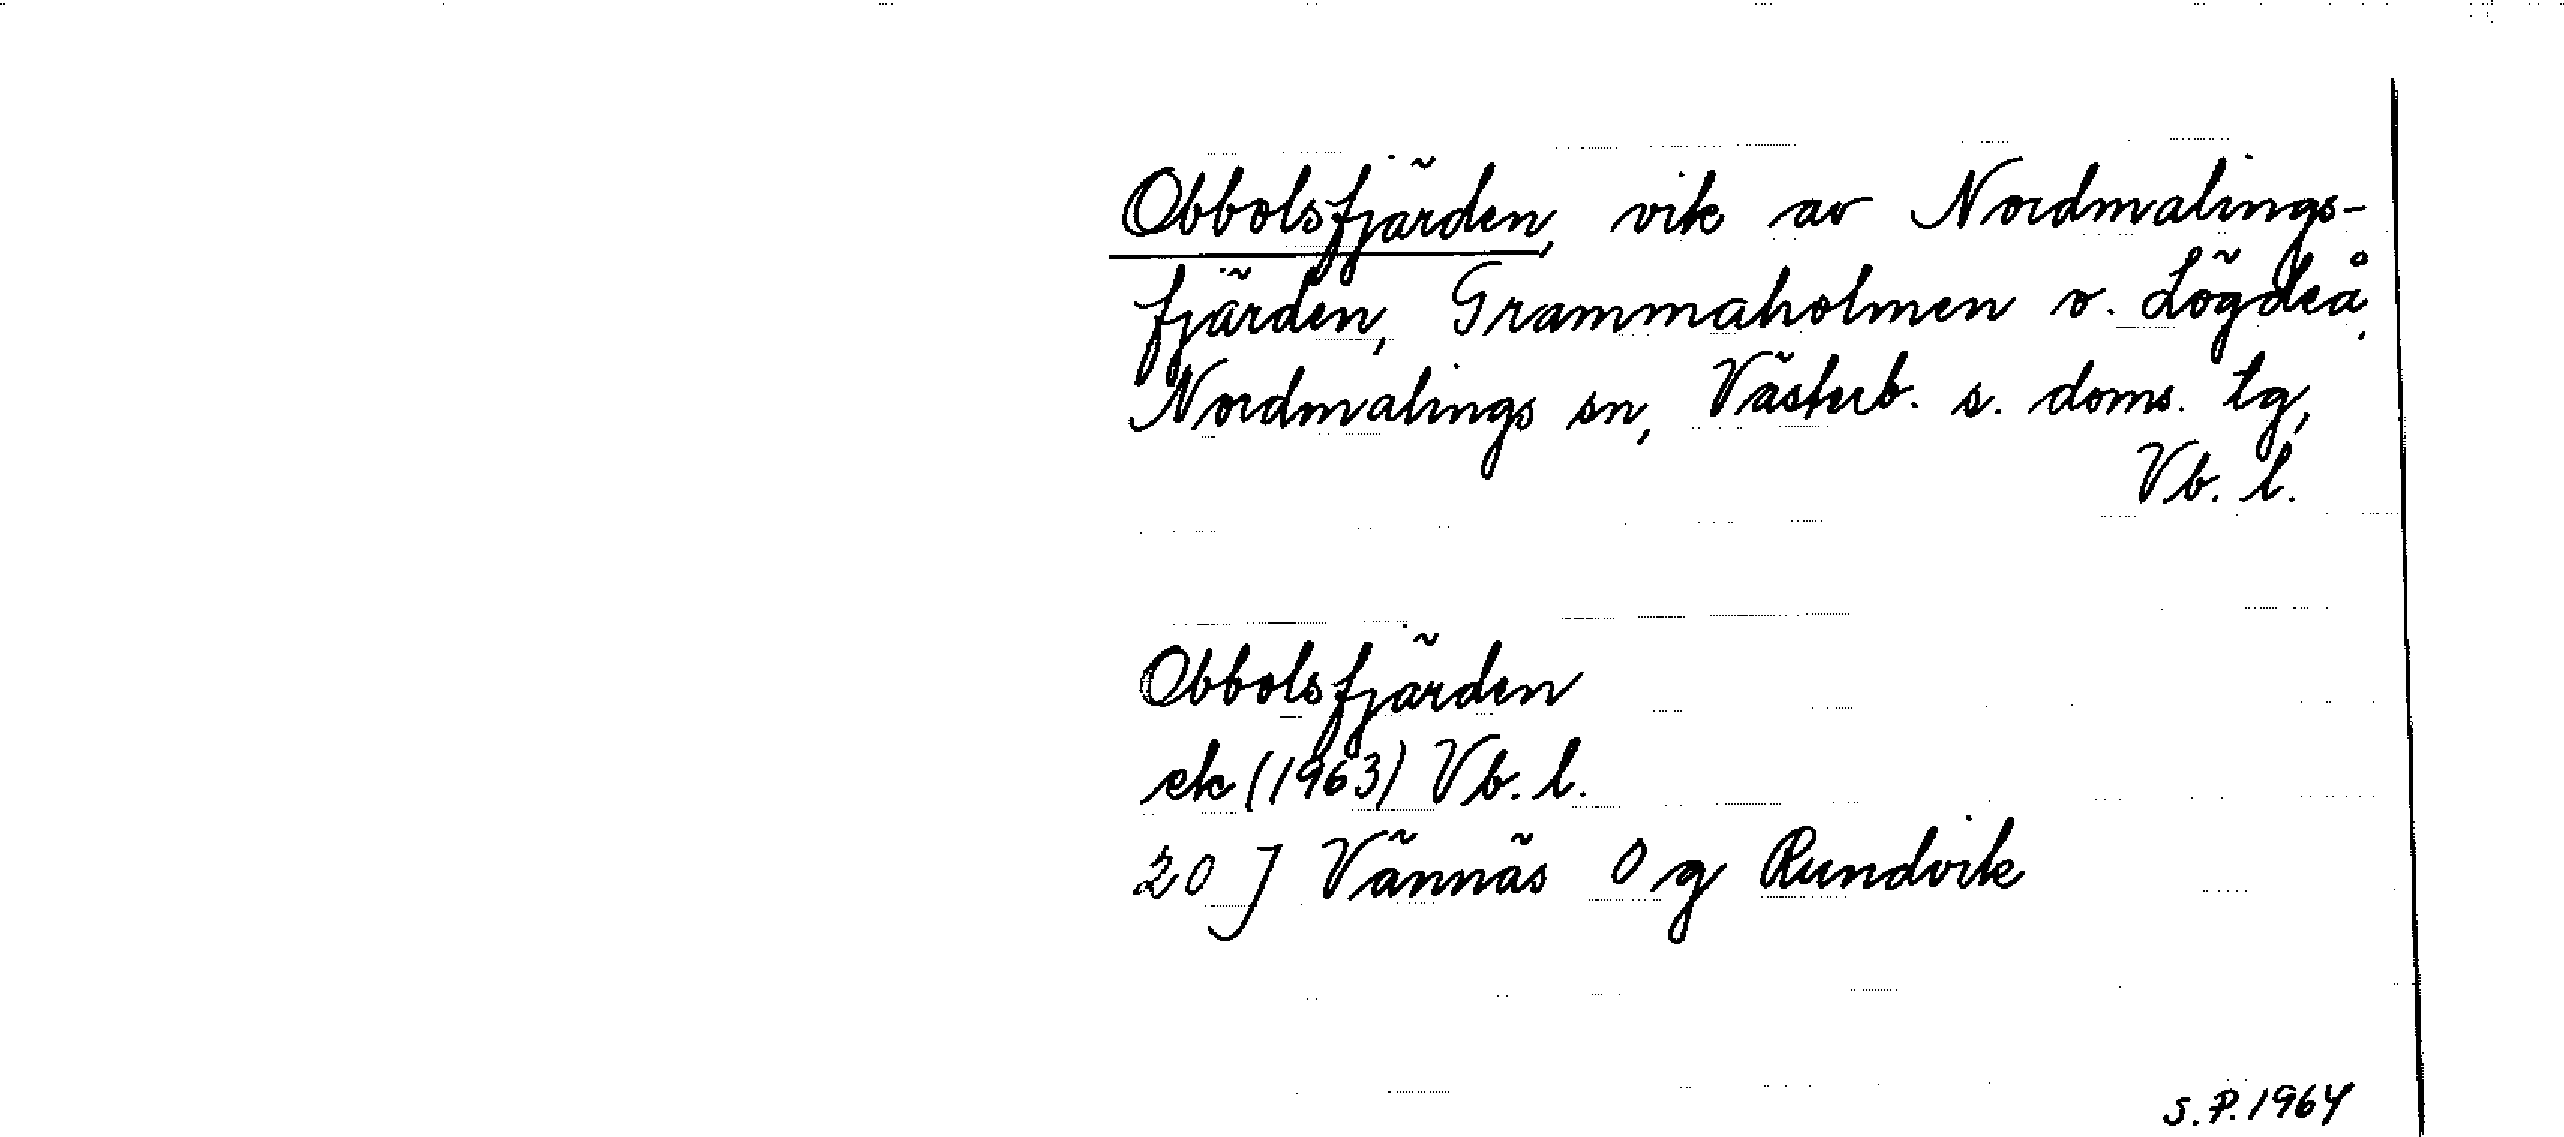 Obbolsfjärden, vik av Nordmalings-
fjärden, Grammaholmen o. Lögdeå,
Nordmalings sn, Västerb. s. doms. tg,
Vb. l.
Obbolsfjärden
ek (1963) Vb. l.
20 J Vännäs 0 g Rundvik
S.P. 1964